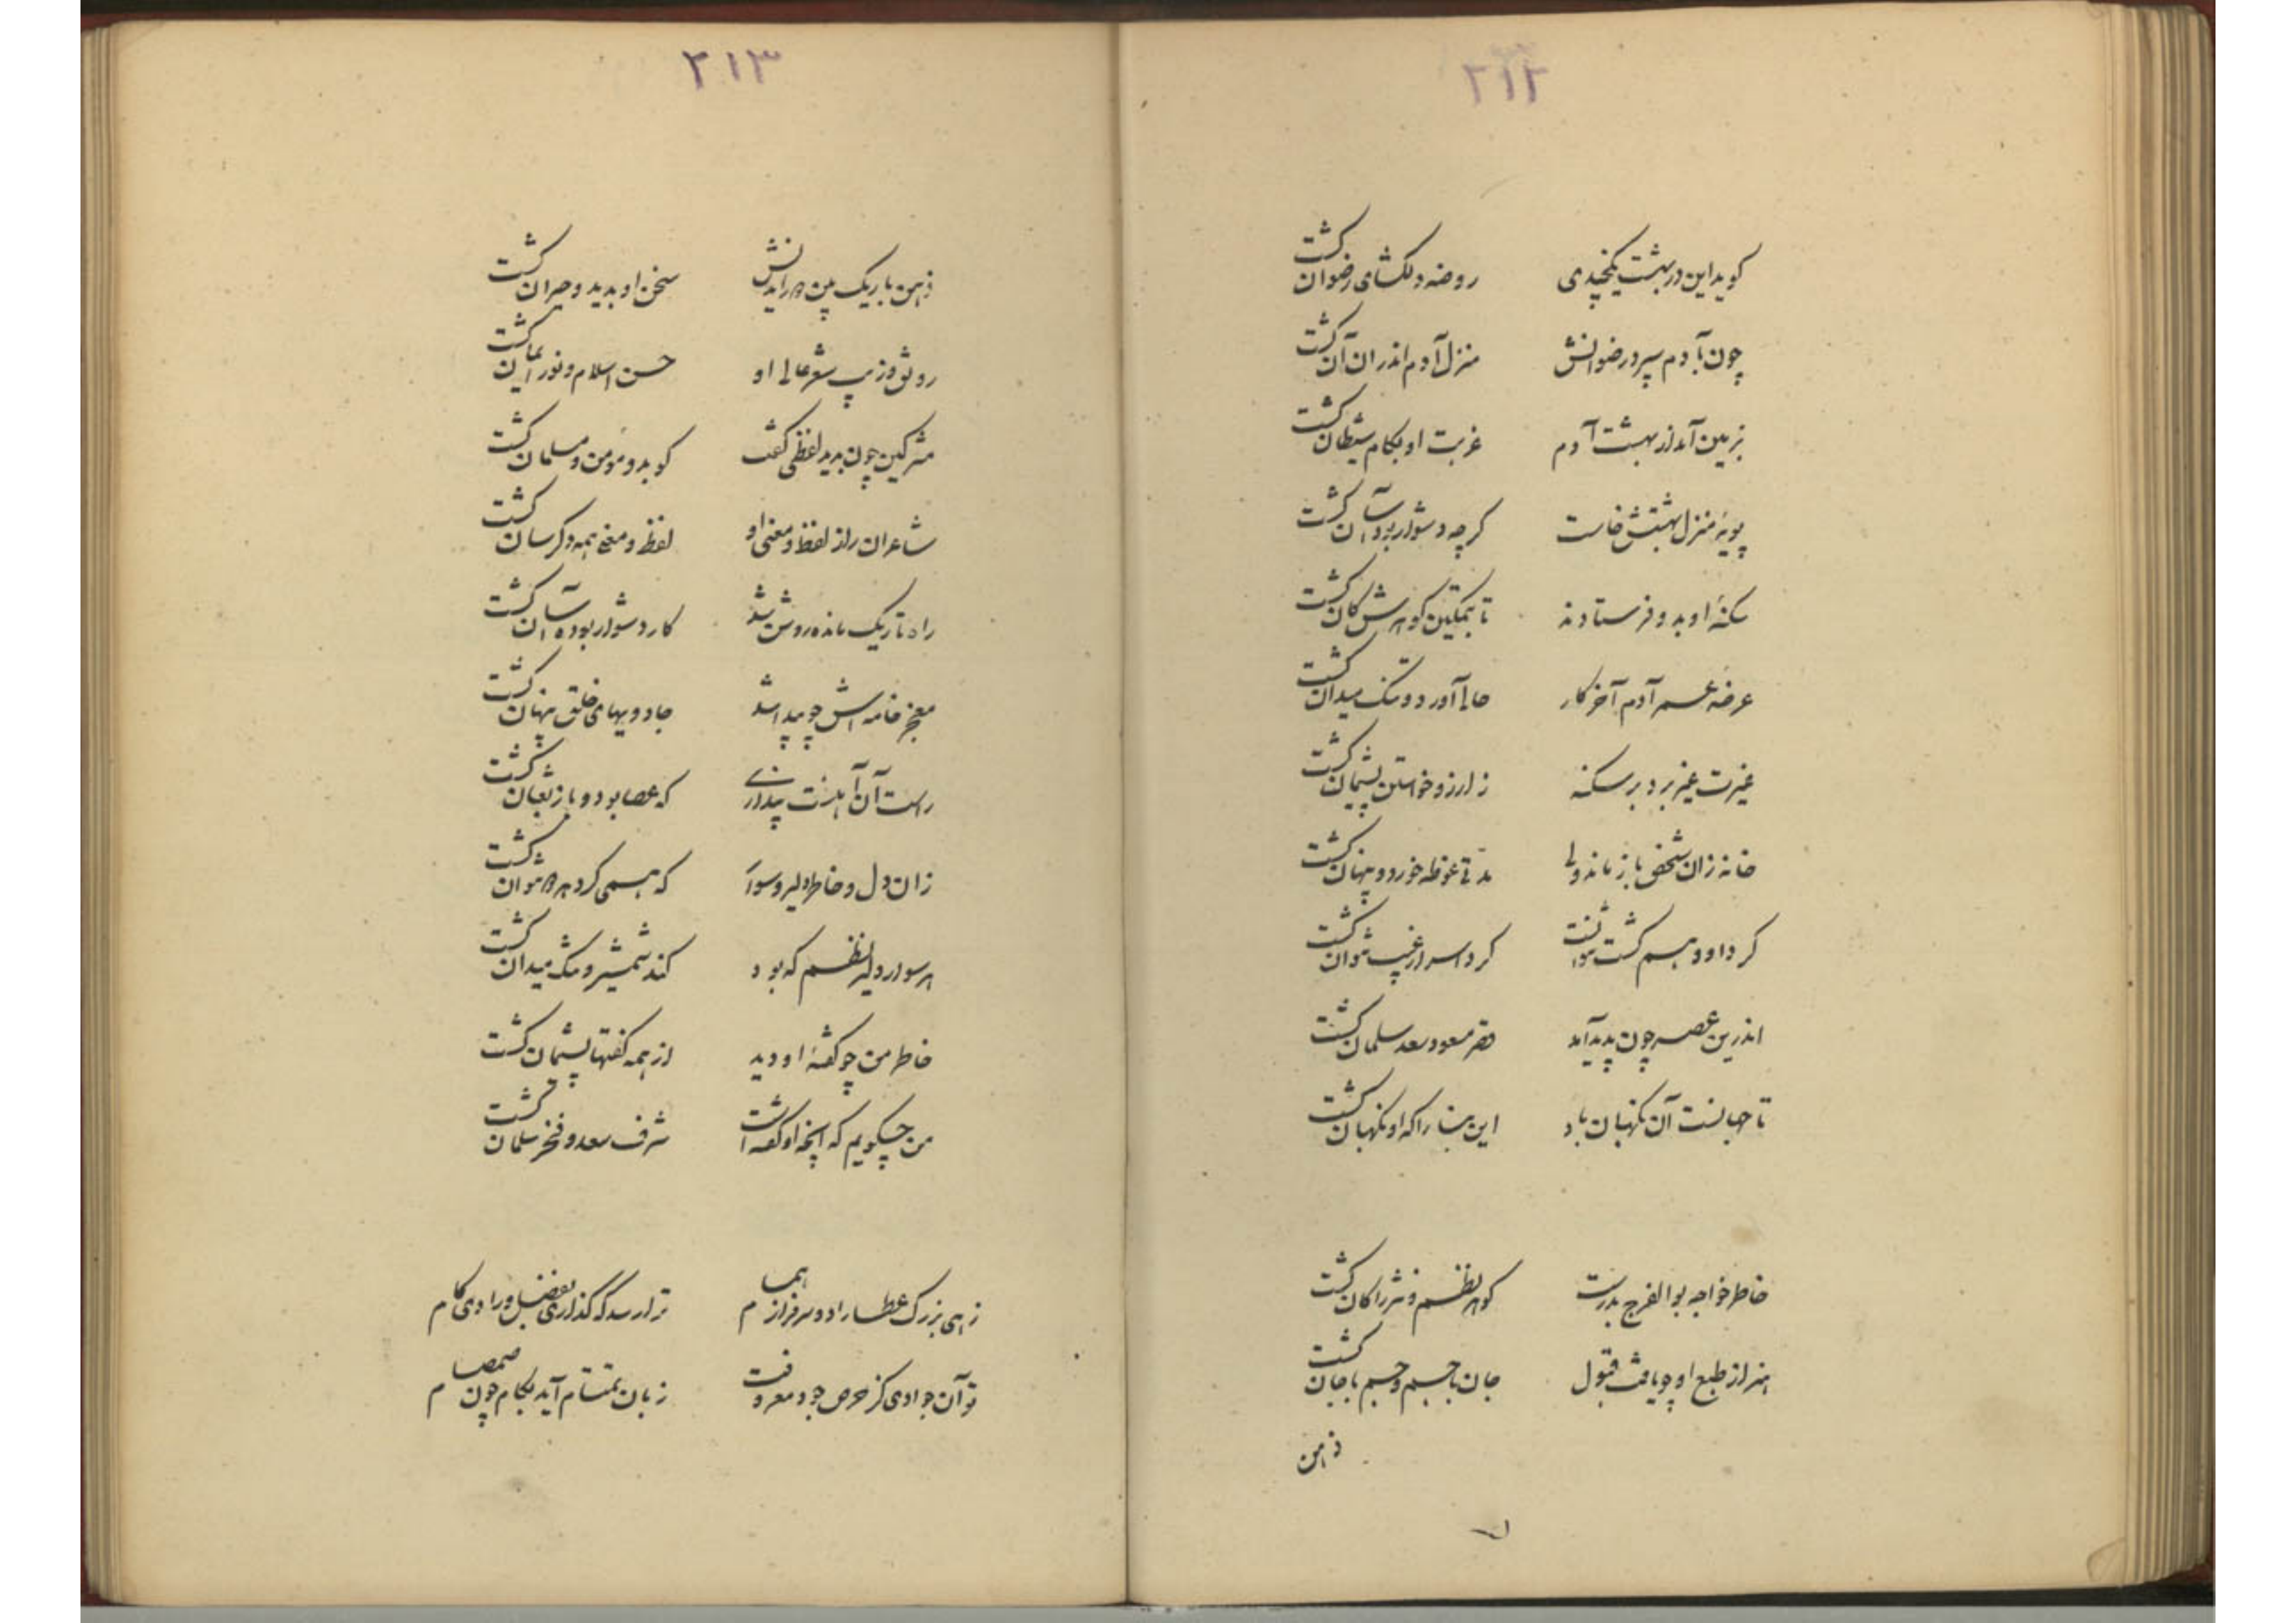 ۲۱۲
کوید این در بهشت یکچندی روضه دلکشای رضوان کشت
چون بآدم سپرد رضوانش منزل آدم اندران آن کشت
بزمین آمد از بهشت آدم غربت او بکام شیطان کشت
پویهٔ منزل بهشتش خاست کرچه دشوار بود آسان کشت
سکنهٔ او بدو فرستادند تا بتمکین کوهرش کان کشت
عرضه عمر آدم آخر کار حالی آورد و تنک میدان کشت
غیرت غیر برد بر سکنه ز ارزو خواستن پشیمان کشت
خانه زان شخص باز ماند ولی مدتی غوطه خورد و پنهان کشت
کرد اسرار غیب
اندرین عصر چون پدید آمد قصر مسعود سعد سلمان کشت
تا جهانست آن نکهبان باد این بنا را که او نکهبان کشت
خاطر خواجه بوالفرج بدرست کوهر نظم و نثر را کان کشت
هنر از طبع او چو یافت قبول جان با جسم و جسم با جان کشت
ذهن
۲۱۳
ذهن باریک بین سخن او بدید و حیران کشت
رونق و زیب شعر عالی او حسن اسلام و نور ایمان کشت
مشرکین چون بدید لفظی کفت کوبدو مؤمن و مسلمان کشت
شاعران را ز لفظ و معنی او لفظ و معنی همه دکرسان کشت
راه تاریک مانده روشن شد کار دشوار بوده آسان کشت
معجز خامه اش چو پیدا شد جادویهای خلق پنهان کشت
راست آن آیتست پنداری که عصا بود و باز ثعبان کشت
زان دل و خاطر دلیر و سوار که همی کرد هر
هر سوار دلیر نظم که بود کند شمشیر و تنک میدان کشت
خاطر من چو کفتهٔ او دید از همه کفتها پشیمان کشت
من چکویم که آنچه او کفته است شرف سعد و فخر سلمان کشت
زهی بزرک عطا راد و سرفراز همام ترا رسد که کذاری بفضل و رادی کام
تو آن جوادی کز حرص جود معروفت زبان بتمتام آید بکام چون صمصام